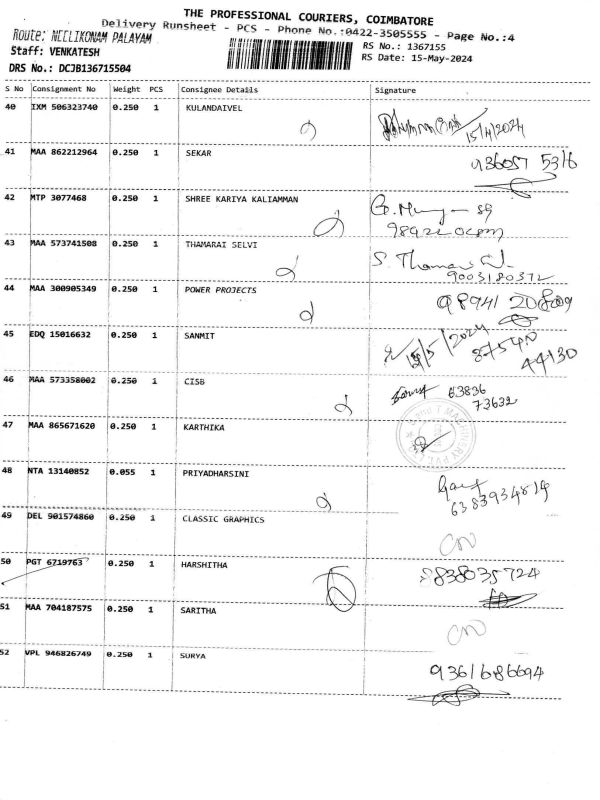 THE PROFESSIONAL COURIERS, COIMBATORE
Delivery Runsheet - PCS - Phone No.:0422-3505555 - Page No.:4
Route: NEELIKONAM PALAYAM
RS No.: 1367155
Staff: VENKATESH
RS Date: 15-May-2024
DRS No.: DCJB136715504
S No Consignment No Weight PCS Consignee Details Signature
40 IXM 506323740 0.250 1 KULANDAIVEL
15/4/2024
41 MAA 862212964 0.250 1 SEKAR
936057 5316
42 MTP 3077468 0.250 1 SHREE KARIYA KALIAMMAN
43 MAA 573741508 0.250 1 THAMARAI SELVI
9003180372
44 MAA 300905349 0.250 1 POWER PROJECTS
98941 20809
45 EDQ 15016632 0.250 1 SANMIT
15/5/2024
87540
44130
46 MAA 573358002 0.250 1 CISB
63836
73632
47 MAA 865671620 0.250 1 KARTHIKA
48 NTA 13140852 0.055 1 PRIYADHARSINI
6383934814
49 DEL 901574860 0.250 1 CLASSIC GRAPHICS
50 PGT 6719763 0.250 1 HARSHITHA
8838035724
51 MAA 704187575 0.250 1 SARITHA
52 VPL 946826749 0.250 1 SURYA
9361686694